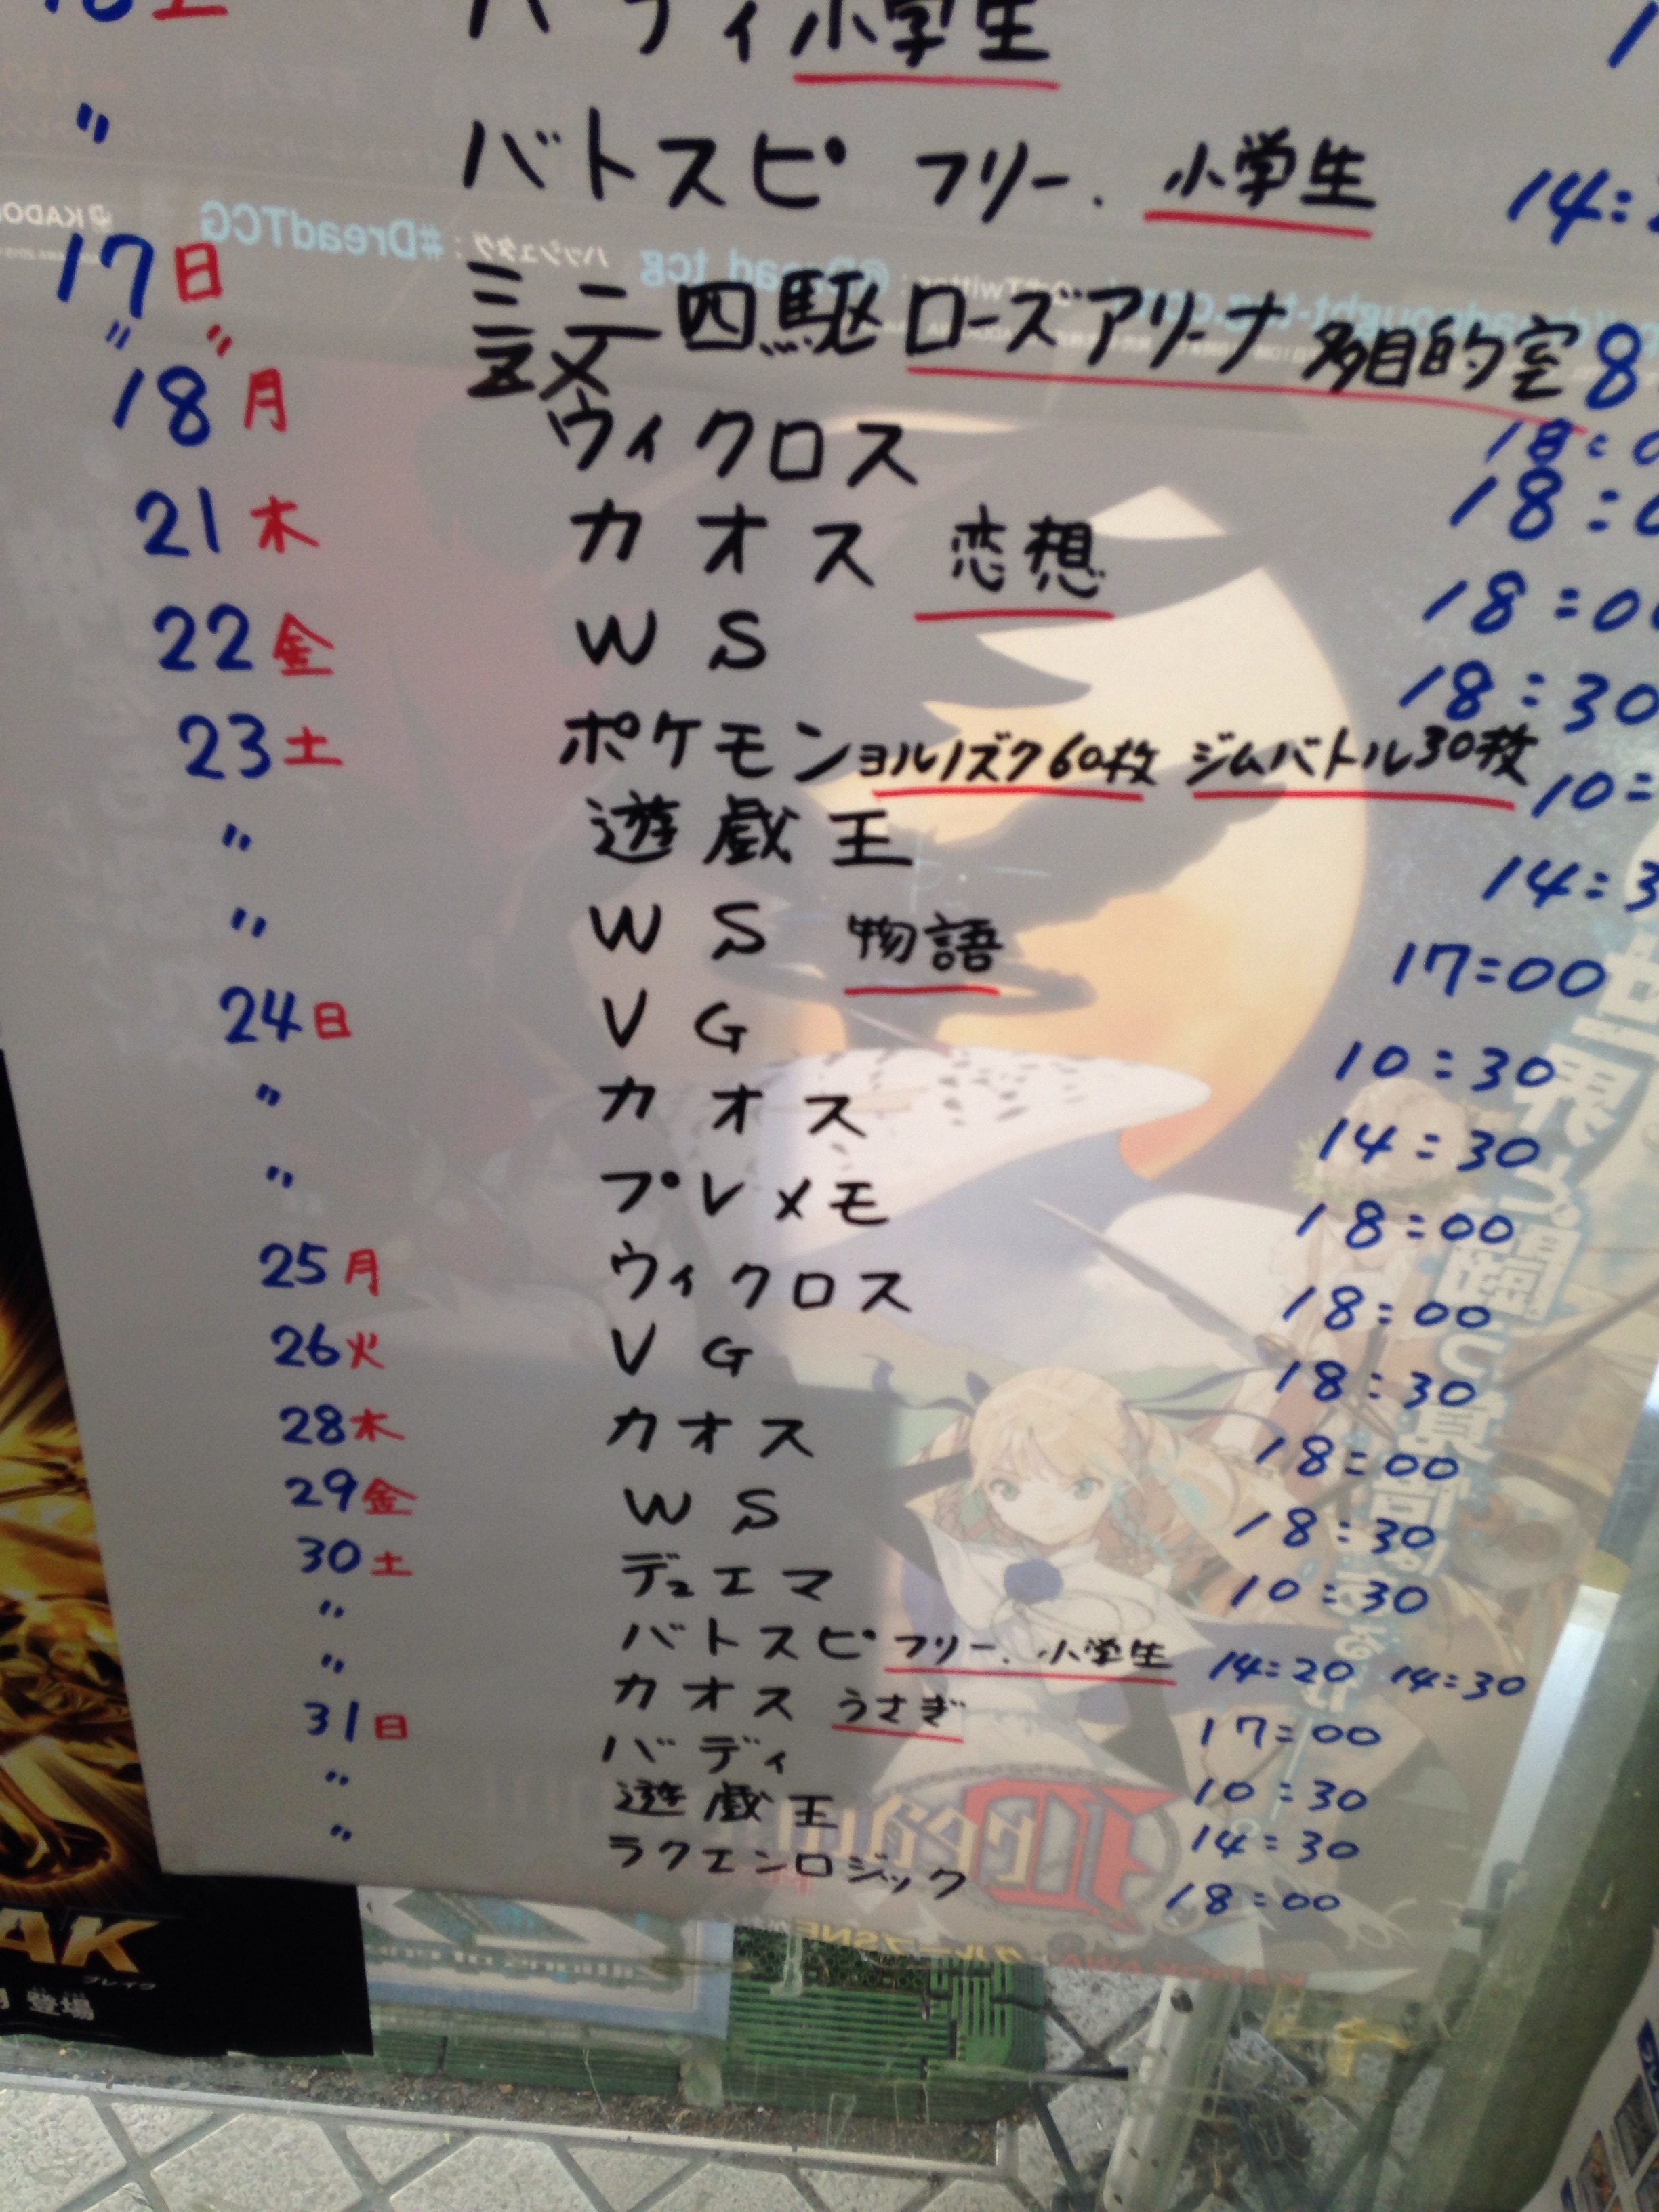 土
バディ 小学生
〃 バトスピ フリー、小学生 14:
17 日 ミニ四駆 ローズアリーナ 多目的室 8
〃 〃 Z/X 18:0
18 月 ウィクロス 18:0
21 木 カオス 恋想 18:00
22 金 WS 18:30
23 土 ポケモン ヨルノズク60枚 ジムバトル30枚 10:
〃 遊戯王 14:3
〃 WS 物語 17:00
24 日 VG 10:30
〃 カオス 14:30
〃 プレメモ 18:00
25 月 ウィクロス 18:00
26 火 VG 18:30
28 木 カオス 18:00
29 金 WS 18:30
30 土 デュエマ 10:30
〃 バトスピ フリー、小学生 14:20 14:30
〃 カオス うさぎ 17:00
31 日 バディ 10:30
〃 遊戯王 14:30
〃 ラクエンロジック 18:00
ハッシュタグ:#DreadTCG
AK
ブレイク
登場